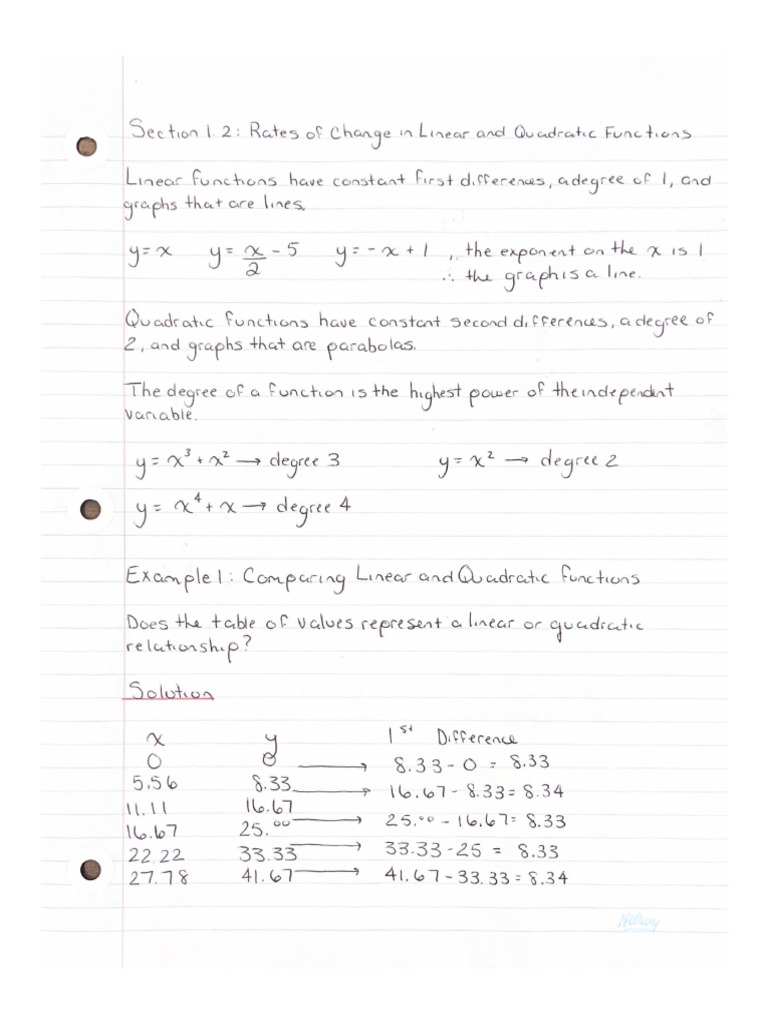 Section 1.2: Rates of Change in Linear and Quadratic Functions
Linear functions have constant first differences, a degree of 1, and
graphs that are lines.
y = x    y = x/2 - 5    y = -x + 1 ,, the exponent on the x is 1
∴ the graph is a line.
Quadratic functions have constant second differences, a degree of
2, and graphs that are parabolas.
The degree of a function is the highest power of the independent
variable.
y = x³ + x² → degree 3    y = x² → degree 2
y = x⁴ + x → degree 4
Example 1: Comparing Linear and Quadratic Functions
Does the table of values represent a linear or quadratic
relationship?
Solution
x    y    1st Difference
0    0 → 8.33 - 0 = 8.33
5.56    8.33 → 16.67 - 8.33 = 8.34
11.11    16.67
16.67    25.00 → 25.00 - 16.67 = 8.33
22.22    33.33 → 33.33 - 25 = 8.33
27.78    41.67 → 41.67 - 33.33 = 8.34
Hilroy